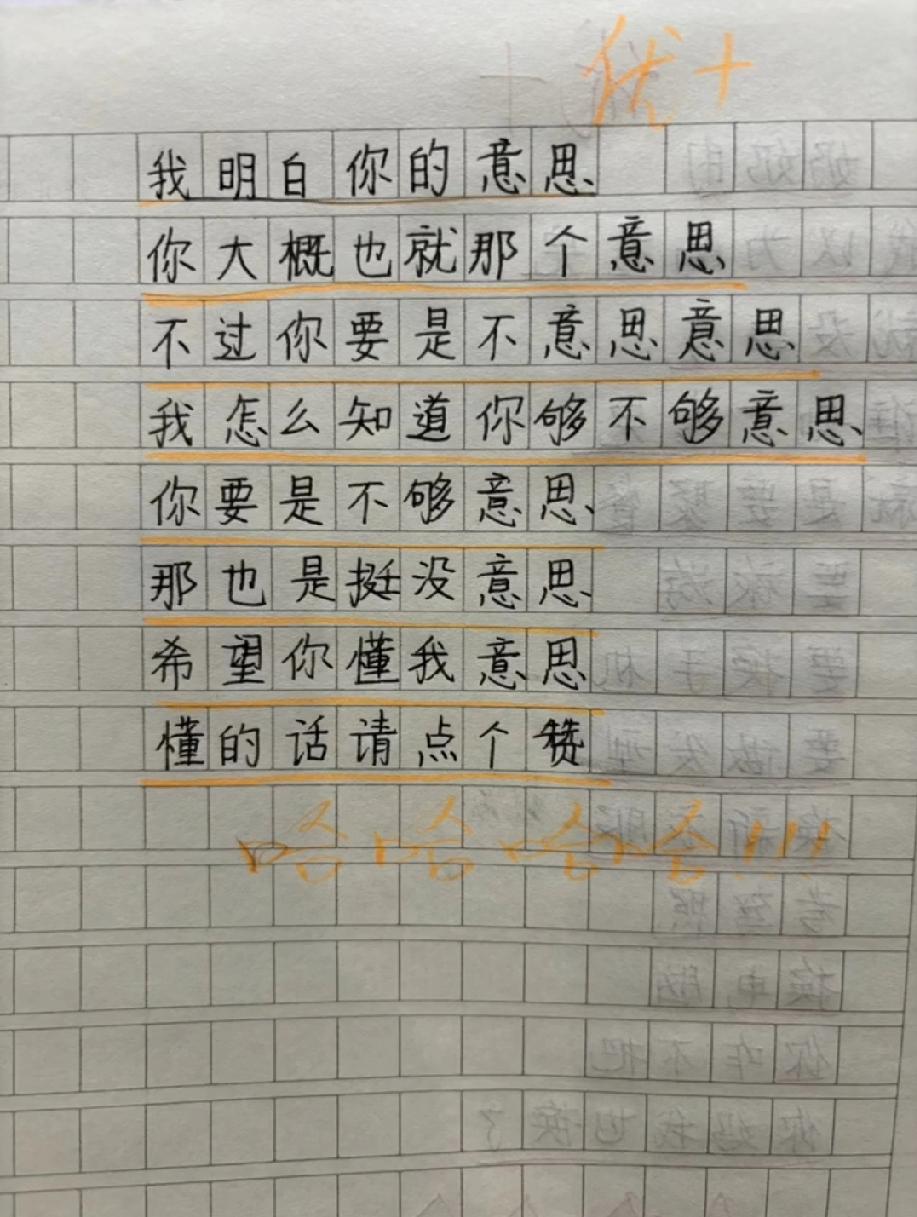 优+
我明白你的意思
你大概也就那个意思
不过你要是不意思意思
我怎么知道你够不够意思
你要是不够意思
那也是挺没意思
希望你懂我意思
懂的话请点个赞
哈哈哈哈!!!